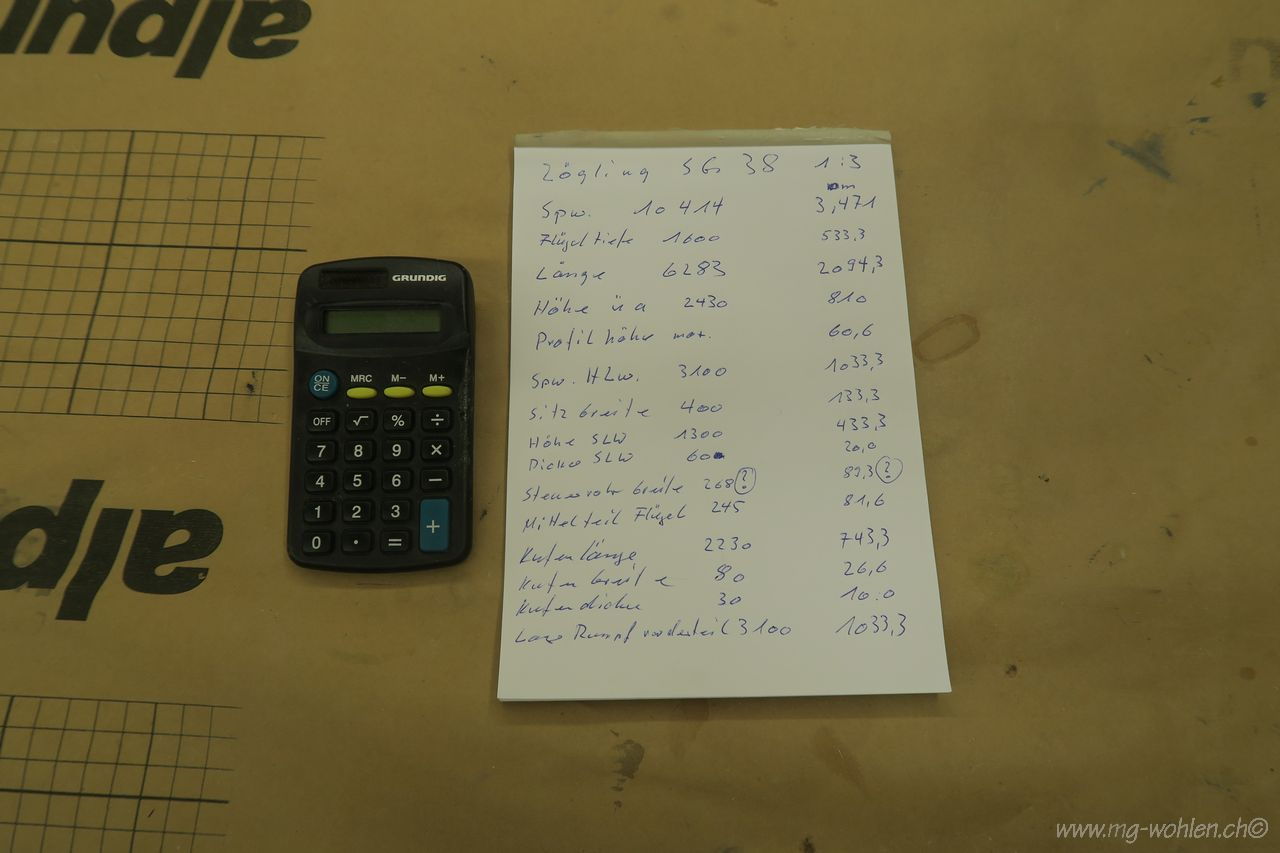 alpur
alp
GRUNDIG
ON CE MRC M− M+
OFF √ % ÷
7 8 9 ×
4 5 6 −
1 2 3 +
0 · =
Zögling SG 38 1:3
Spw. 10 414 3,471 m
Flügeltiefe 1600 533,3
Länge 6283 2094,3
Höhe ü a 2430 810
Profilhöhe max. 60,6
Spw. HLW. 3100 1033,3
Sitzbreite 400 133,3
Höhe SLW 1300 433,3
Dicke SLW 60 20,0
Steuerrohr breite 268 ? 89,3 ?
Mittelteil Flügel 245 81,6
Kufenlänge 2230 743,3
Kufenbreite 80 26,6
Kufendicke 30 10.0
Rumpf vorderteil 3100 1033,3
www.mg-wohlen.ch©